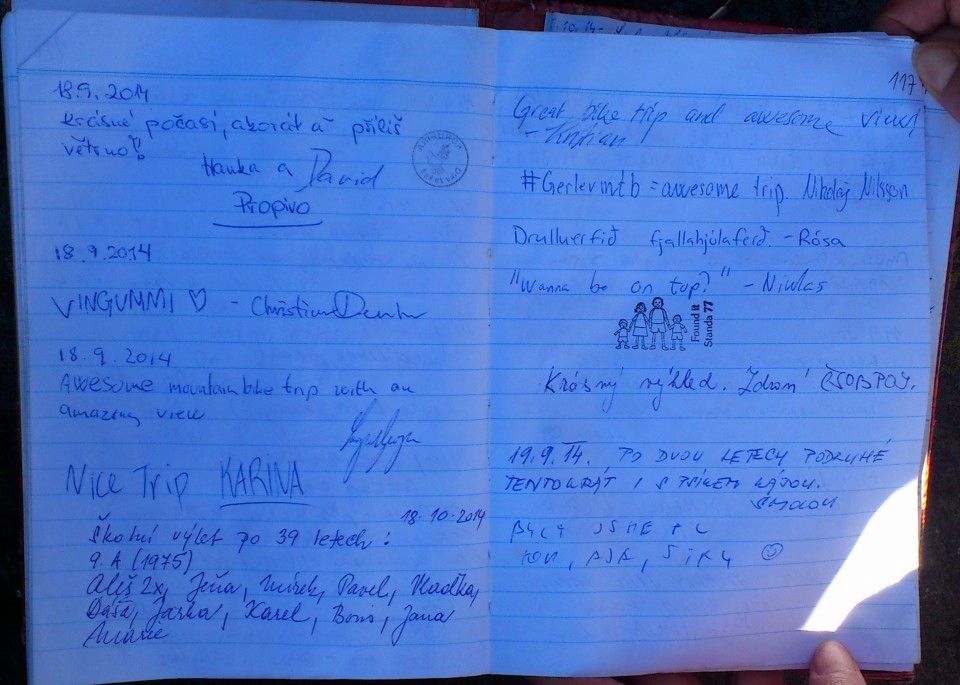 18.9.2014
krásné počasí, akorát a příliš
větrno!!
Hanka a David
Propivo
18.9.2014
VINGUMMI ♡ - Christian
18.9.2014
Awesome mountainbike trip with an
amazing view
Nice Trip KARINA
18.10.2014
Školní výlet po 39 letech:
9. A (1975)
Aleš 2x, Jiřa, Mirek, Pavel, Vlaďka,
Dáša, Jarka, Karel, Boris, Jana
117
Great bike trip and awesome view!
#Gerlevmtb = awesome trip. Nikolaj Nilsson
Drulluerfið fjallahjólaferð. - Rósa
"Wanna be on top?" - Niklas
Found it
Standa 77
Krásný výhled. Zdraví
19.9.14. PO DVOU LETECH PODRUHÉ
TENTOKRÁT I S PSÍKEM
BYLI JSME TU